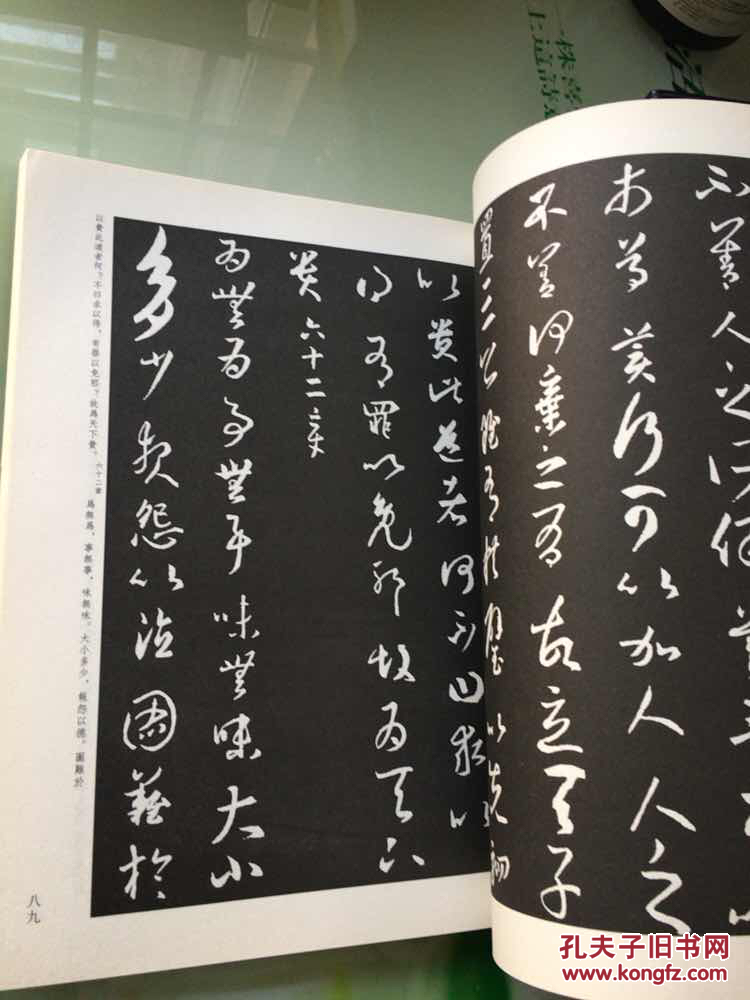 不善人之所保美言可以
市尊美行可以加人人之
不善何棄之有故立天子
置三公雖有拱璧以先駟
以貴此道者何不曰求以
得有罪以免邪故為天下
貴六十二章
為無為事無事味無味大小
多少報怨以德圖難於
以貴此道者何？不曰求以得，有罪以免邪？故為天下貴。六十二章 為無為，事無事，味無味。大小多少，報怨以德。圖難於
八九
孔夫子旧书网
www.kongfz.com